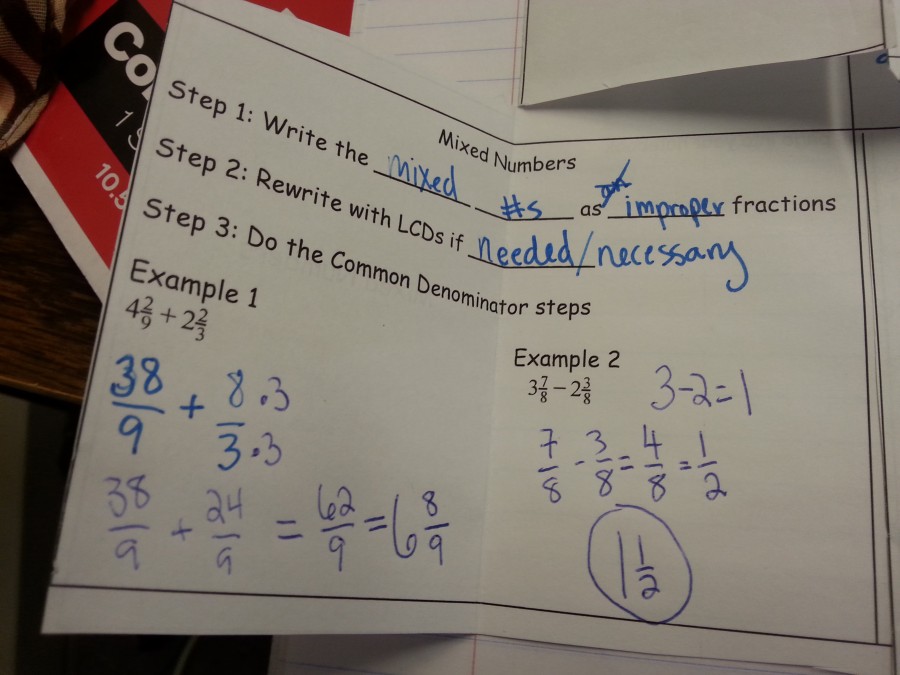 Co
10.5
Mixed Numbers
Step 1: Write the mixed #s as improper fractions
Step 2: Rewrite with LCDs if needed/necessary
Step 3: Do the Common Denominator steps
Example 1
4 2/9 + 2 2/3
38/9 + 8·3/3·3
38/9 + 24/9 = 62/9 = 6 8/9
Example 2
3 7/8 − 2 3/8
3-2=1
7/8 - 3/8 = 4/8 = 1/2
1 1/2